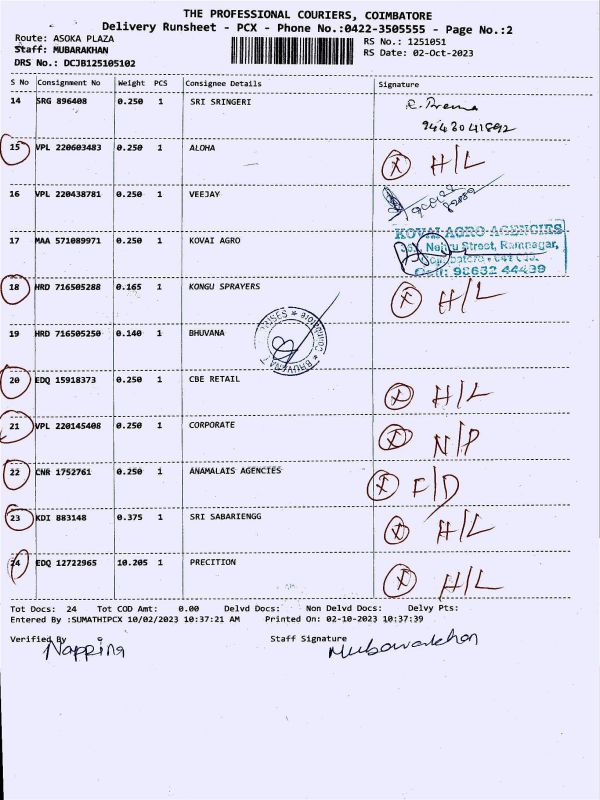 THE PROFESSIONAL COURIERS, COIMBATORE
Delivery Runsheet - PCX - Phone No.:0422-3505555 - Page No.:2
Route: ASOKA PLAZA
RS No.: 1251051
Staff: MUBARAKHAN
RS Date: 02-Oct-2023
DRS No.: DCJB125105102
S No Consignment No Weight PCS Consignee Details Signature
14 SRG 896408 0.250 1 SRI SRINGERI
15 VPL 220603483 0.250 1 ALOHA H/L
16 VPL 220438781 0.250 1 VEEJAY
17 MAA 571089971 0.250 1 KOVAI AGRO
KOVAI AGRO AGENCIES
Nehru Street, Ramnagar,
Cell: 98632 44439
18 HRD 716505288 0.165 1 KONGU SPRAYERS H/L
19 HRD 716505250 0.140 1 BHUVANA
20 EDQ 15918373 0.250 1 CBE RETAIL H/L
21 VPL 220145408 0.250 1 CORPORATE N/P
22 CNR 1752761 0.250 1 ANAMALAIS AGENCIES F/D
23 KDI 883148 0.375 1 SRI SABARIENGG H/L
24 EDQ 12722965 10.205 1 PRECITION H/L
Tot Docs: 24 Tot COD Amt: 0.00 Delvd Docs: Non Delvd Docs: Delvy Pts:
Entered By :SUMATHIPCX 10/02/2023 10:37:21 AM Printed On: 02-10-2023 10:37:39
Verified By Staff Signature
Nappina Mubarakhan